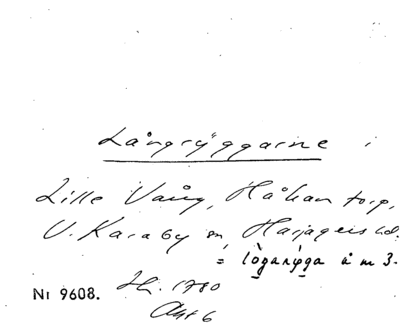 Långryggarne i
Lille Vång, Håkantorp,
V. Karaby sn, Harjagers hd.
= lògarýga å m 3.
Nr 9608. Sk. 1780
Akt 6